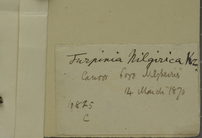 Turpinia Nilgirica Wz.
Canoor
14 March 1870
1825
C